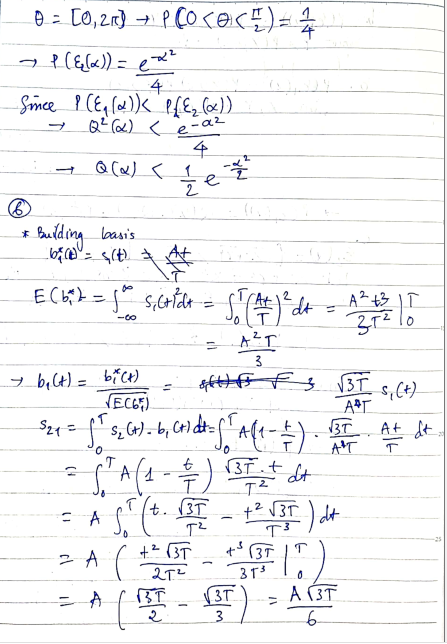 θ = [0,2π] → P(0<θ<π/2) = 1/4
→ P(ε₂(α)) = e^-α²/4
Since P(ε₁(α)) < P(ε₂(α))
→ Q²(α) < e^-α²/4
→ Q(α) < 1/2 e^-α²/2
⑥
* Building basis
b₁*(t) = s₁(t) = At/T
E(b₁*) = ∫_-∞^∞ s₁(t)² dt = ∫₀^T (At/T)² dt = A² t³/3T² |₀^T
= A²T/3
→ b₁(t) = b₁*(t)/√E(b₁*) = √3T/AT s₁(t)
s₂₁ = ∫₀^T s₂(t) . b₁(t) dt = ∫₀^T A(1 - t/T) . √3T/AT . At/T dt
= ∫₀^T A(1 - t/T) √3T . t/T² dt
= A ∫₀^T (t . √3T/T² - t² √3T/T³) dt
= A (t² √3T/2T² - t³ √3T/3T³ |₀^T)
= A (√3T/2 - √3T/3) = A √3T/6